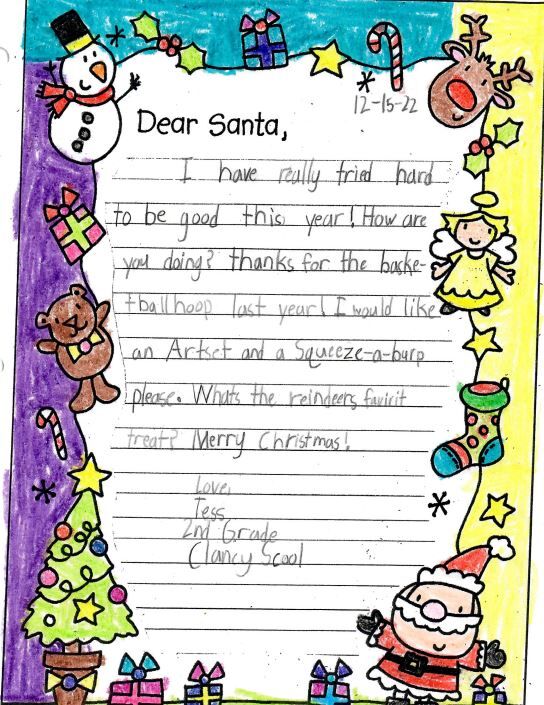 12-15-22
Dear Santa,
I have really tried hard
to be good this year! How are
you doing? thanks for the baske-
tballhoop last year! I would like
an Artset and a Squeeze-a-burp
please. Whats the reindeers favirit
treat? Merry Christmas!
Love,
Tess
2nd Grade
Clancy Scool